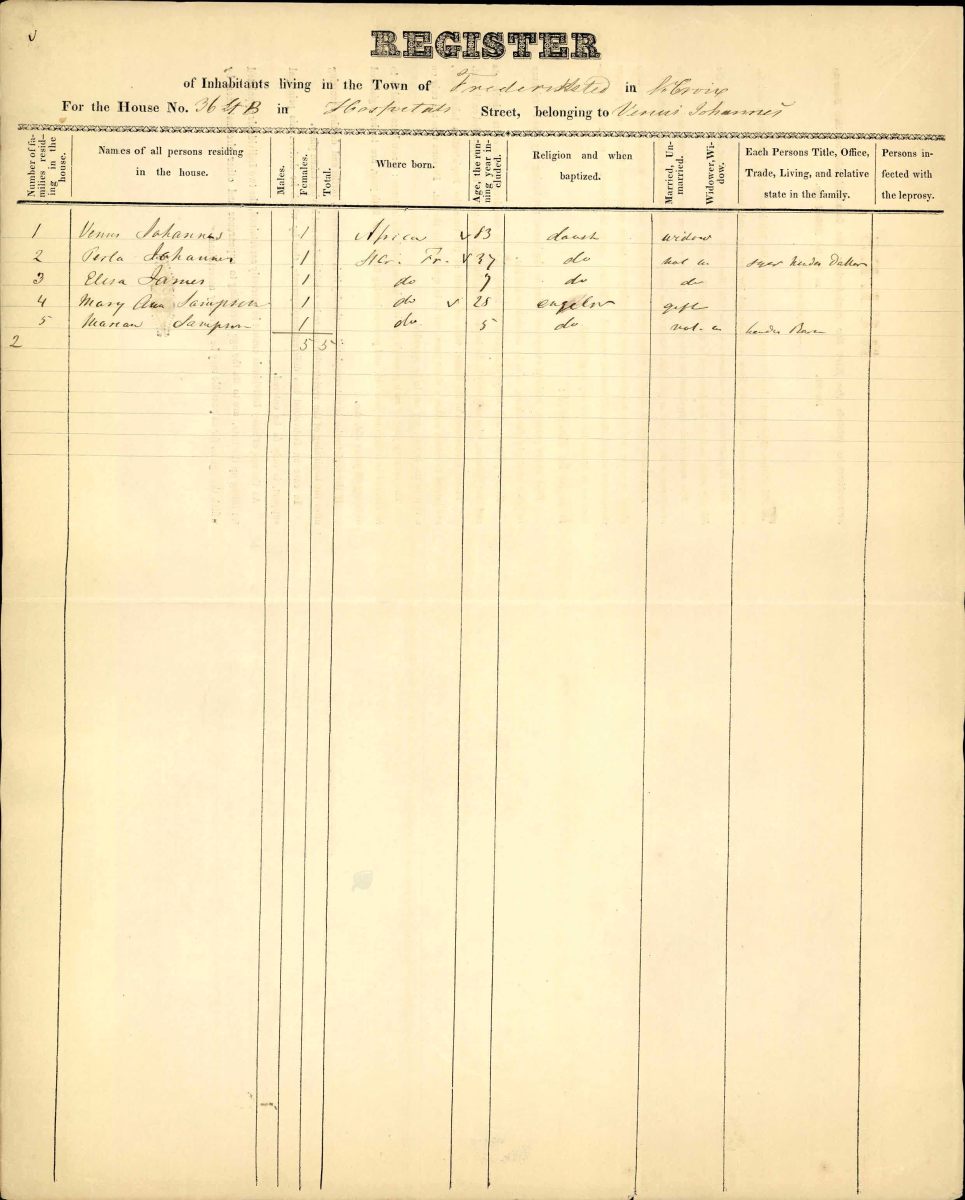 REGISTER
of Inhabitants living in the Town of Frederiksted in St Croix
For the House No. 36 & B in Hospetals Street, belonging to Venus Johannes
Number of families residing in the house.
Names of all persons residing in the house.
Males.
Females.
Total.
Where born.
Age, the running year included.
Religion and when baptized.
Married, Unmarried. Widower, Widow.
Each Persons Title, Office, Trade, Living, and relative state in the family.
Persons infected with the leprosy.
1 Venus Johannes 1 Africa 83 dansk widow
2 Perla Johannes 1 Stcr. Fr. 37 do not m
3 Elisa James 1 do 7 do do
4 Mary Ann Sampson 1 do 28 engelsk gift
5 Sampson 1 do 5 do not m
2 5 5